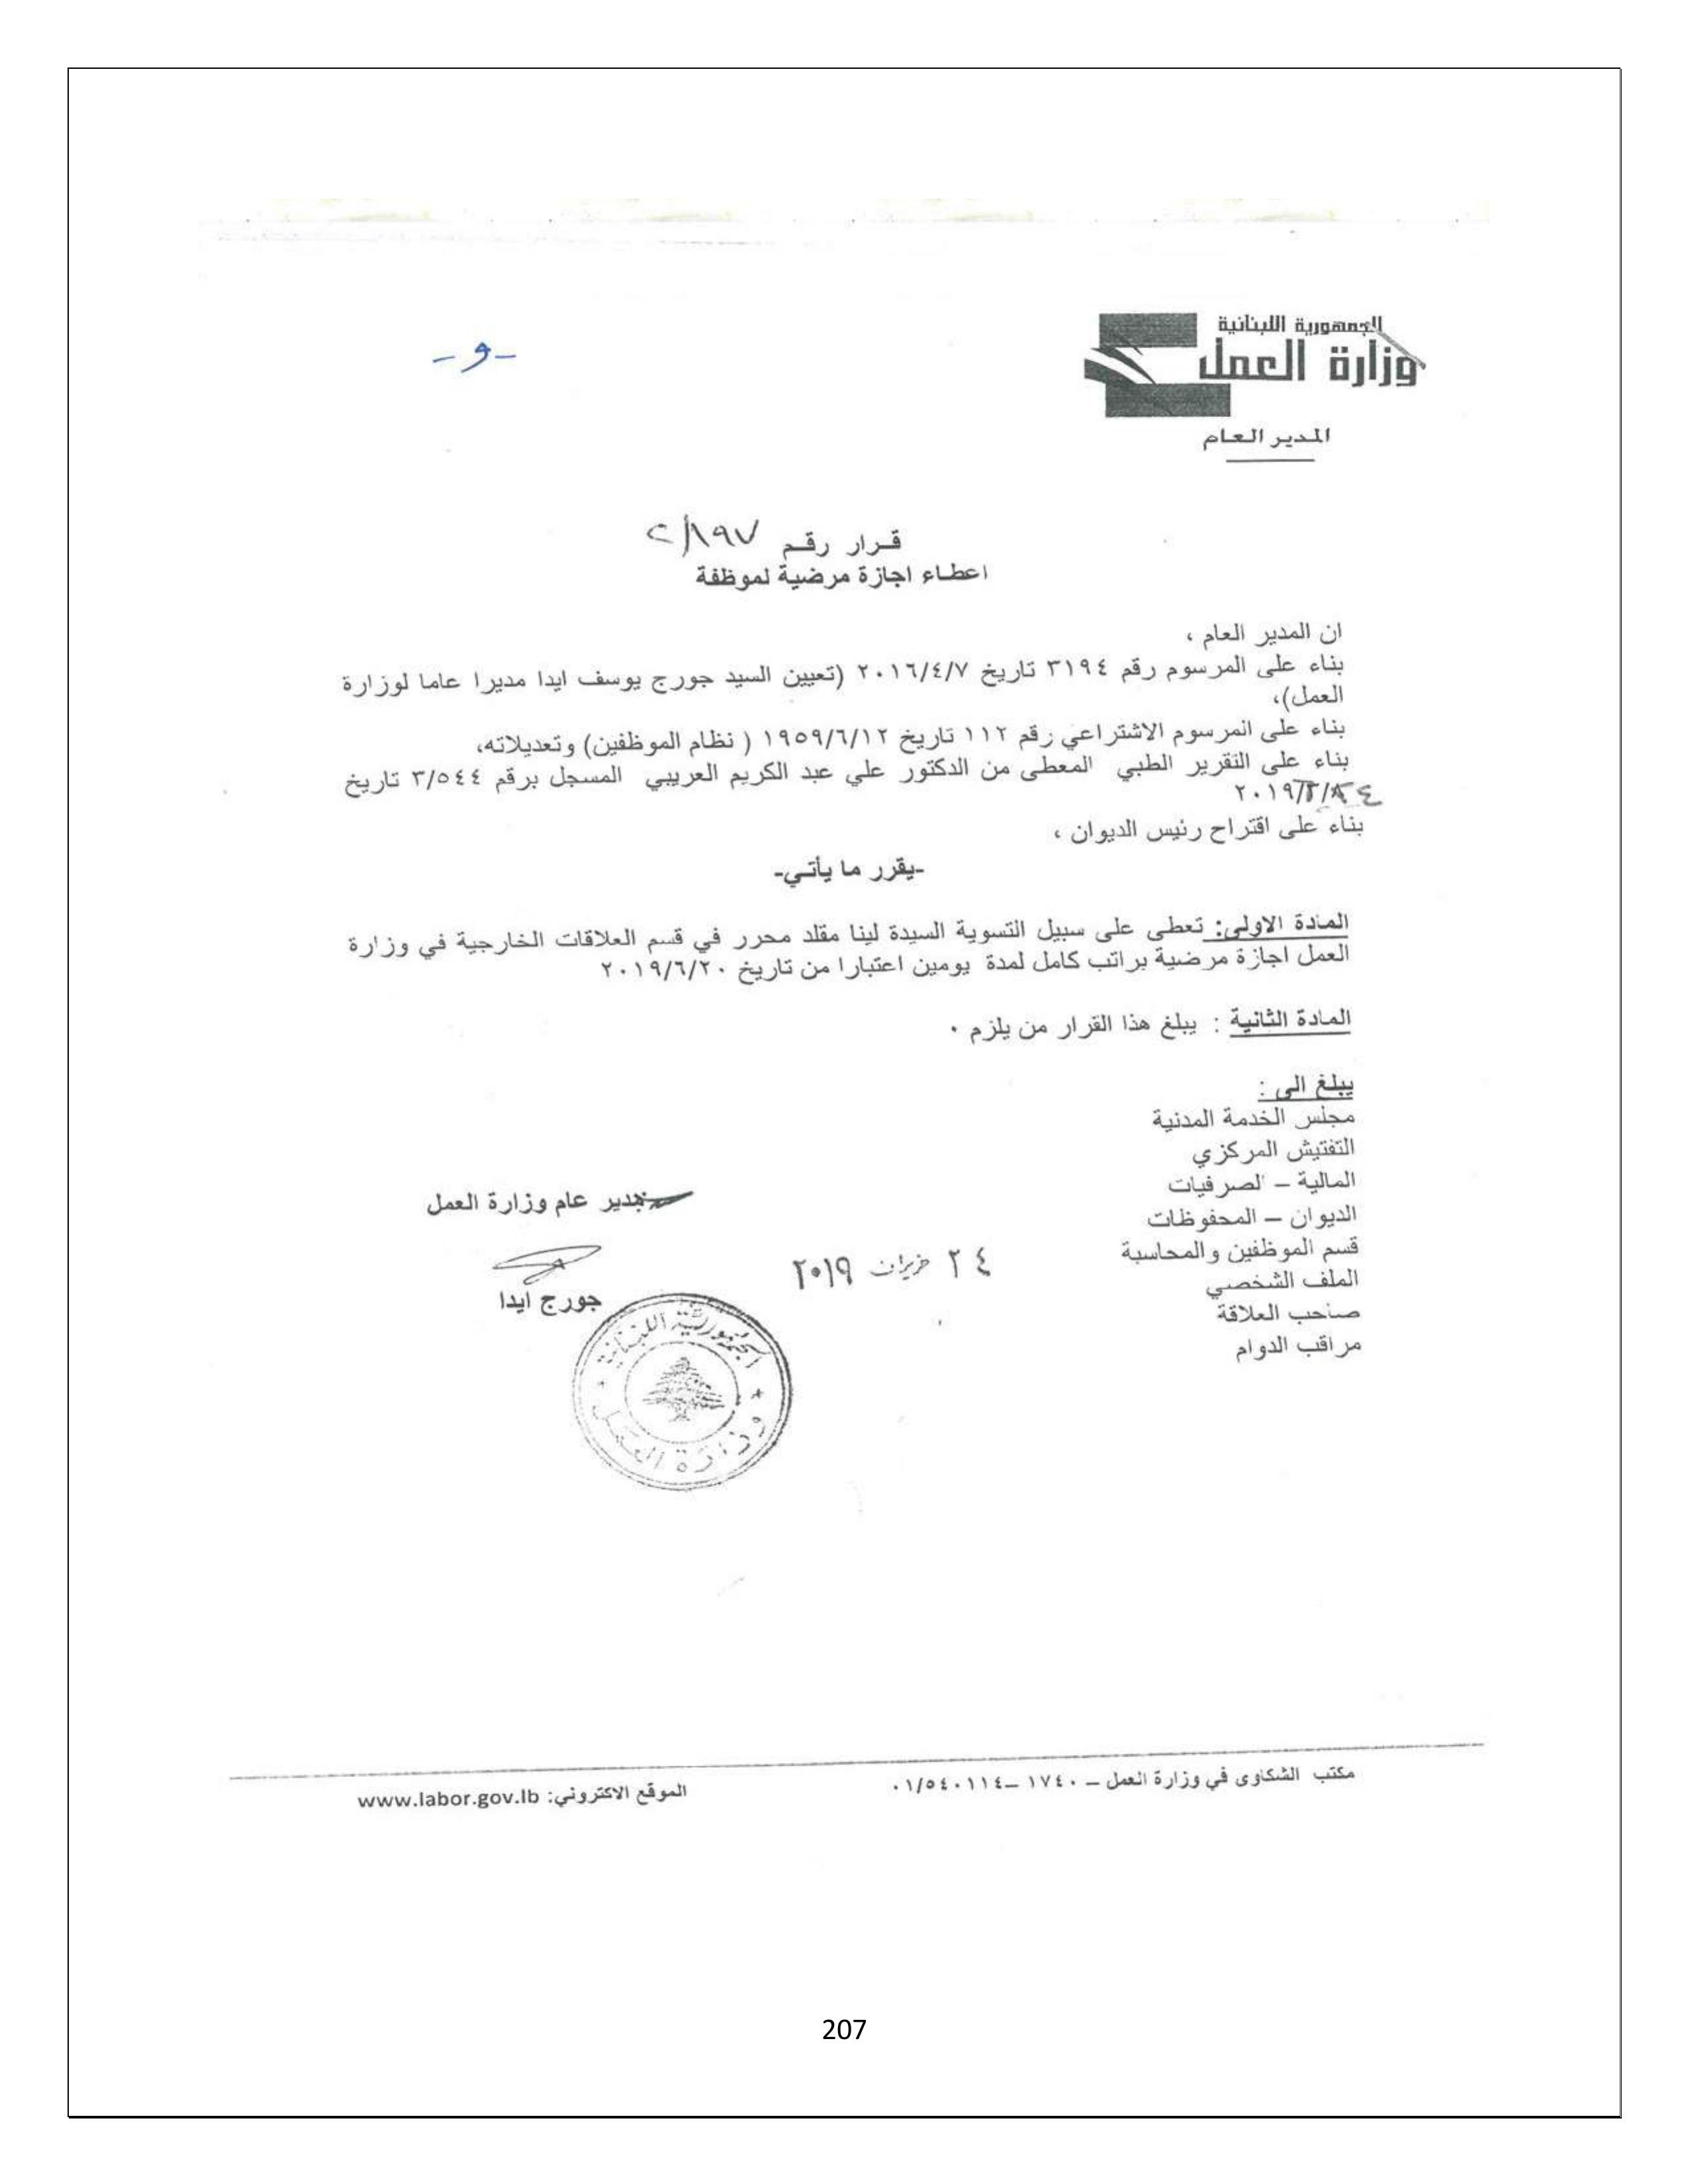 الجمهورية اللبنانية
وزارة العمل
المدير العام
- و -
قرار رقم ٢/١٩٧
اعطاء اجازة مرضية لموظفة
ان المدير العام ،
بناء على المرسوم رقم ٣١٩٤ تاريخ ٢٠١٦/٤/٧ (تعيين السيد جورج يوسف ايدا مديرا عاما لوزارة
العمل)،
بناء على المرسوم الاشتراعي رقم ١١٢ تاريخ ١٩٥٩/٦/١٢ ( نظام الموظفين) وتعديلاته،
بناء على التقرير الطبي المعطى من الدكتور علي عبد الكريم العريبي المسجل برقم ٣/٥٤٤ تاريخ
بناء على اقتراح رئيس الديوان ،
-يقرر ما يأتي-
المادة الاولى: تعطى على سبيل التسوية السيدة لينا مقلد محرر في قسم العلاقات الخارجية في وزارة
العمل اجازة مرضية براتب كامل لمدة يومين اعتبارا من تاريخ ٢٠١٩/٦/٢٠
المادة الثانية : يبلغ هذا القرار من يلزم ٠
يبلغ الى :
مجلس الخدمة المدنية
التفتيش المركزي
المالية – الصرفيات
الديوان – المحفوظات
قسم الموظفين والمحاسبة
الملف الشخصي
صاحب العلاقة
مراقب الدوام
مدير عام وزارة العمل
٢٤ حزيران ٢٠١٩
جورج ايدا
الجمهورية اللبنانية
وزارة العمل
مكتب الشكاوى في وزارة العمل – ١٧٤٠ –٠١/٥٤٠١١٤
الموقع الاكتروني: www.labor.gov.lb
207